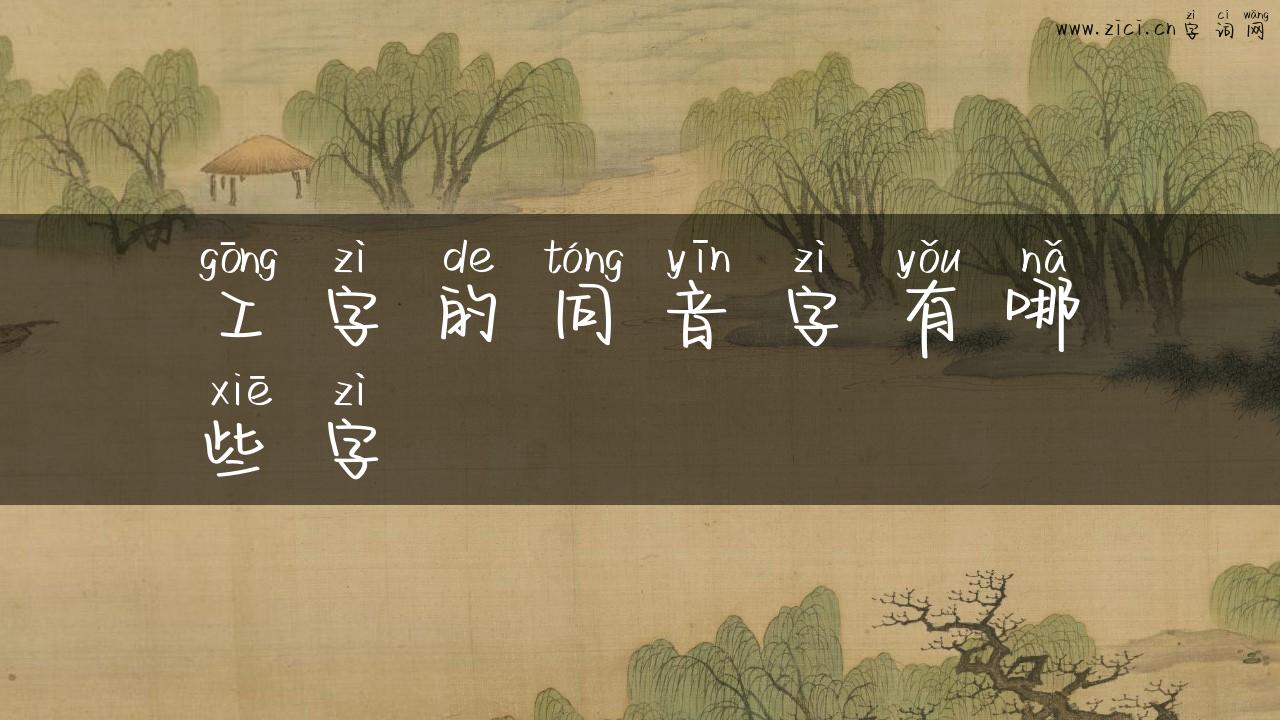 zì cí wǎng
www.zīcī.cn 字 词 网
gōng zì de tóng yīn zì yǒu nǎ
工 字 的 同 音 字 有 哪
xiē zì
些 字